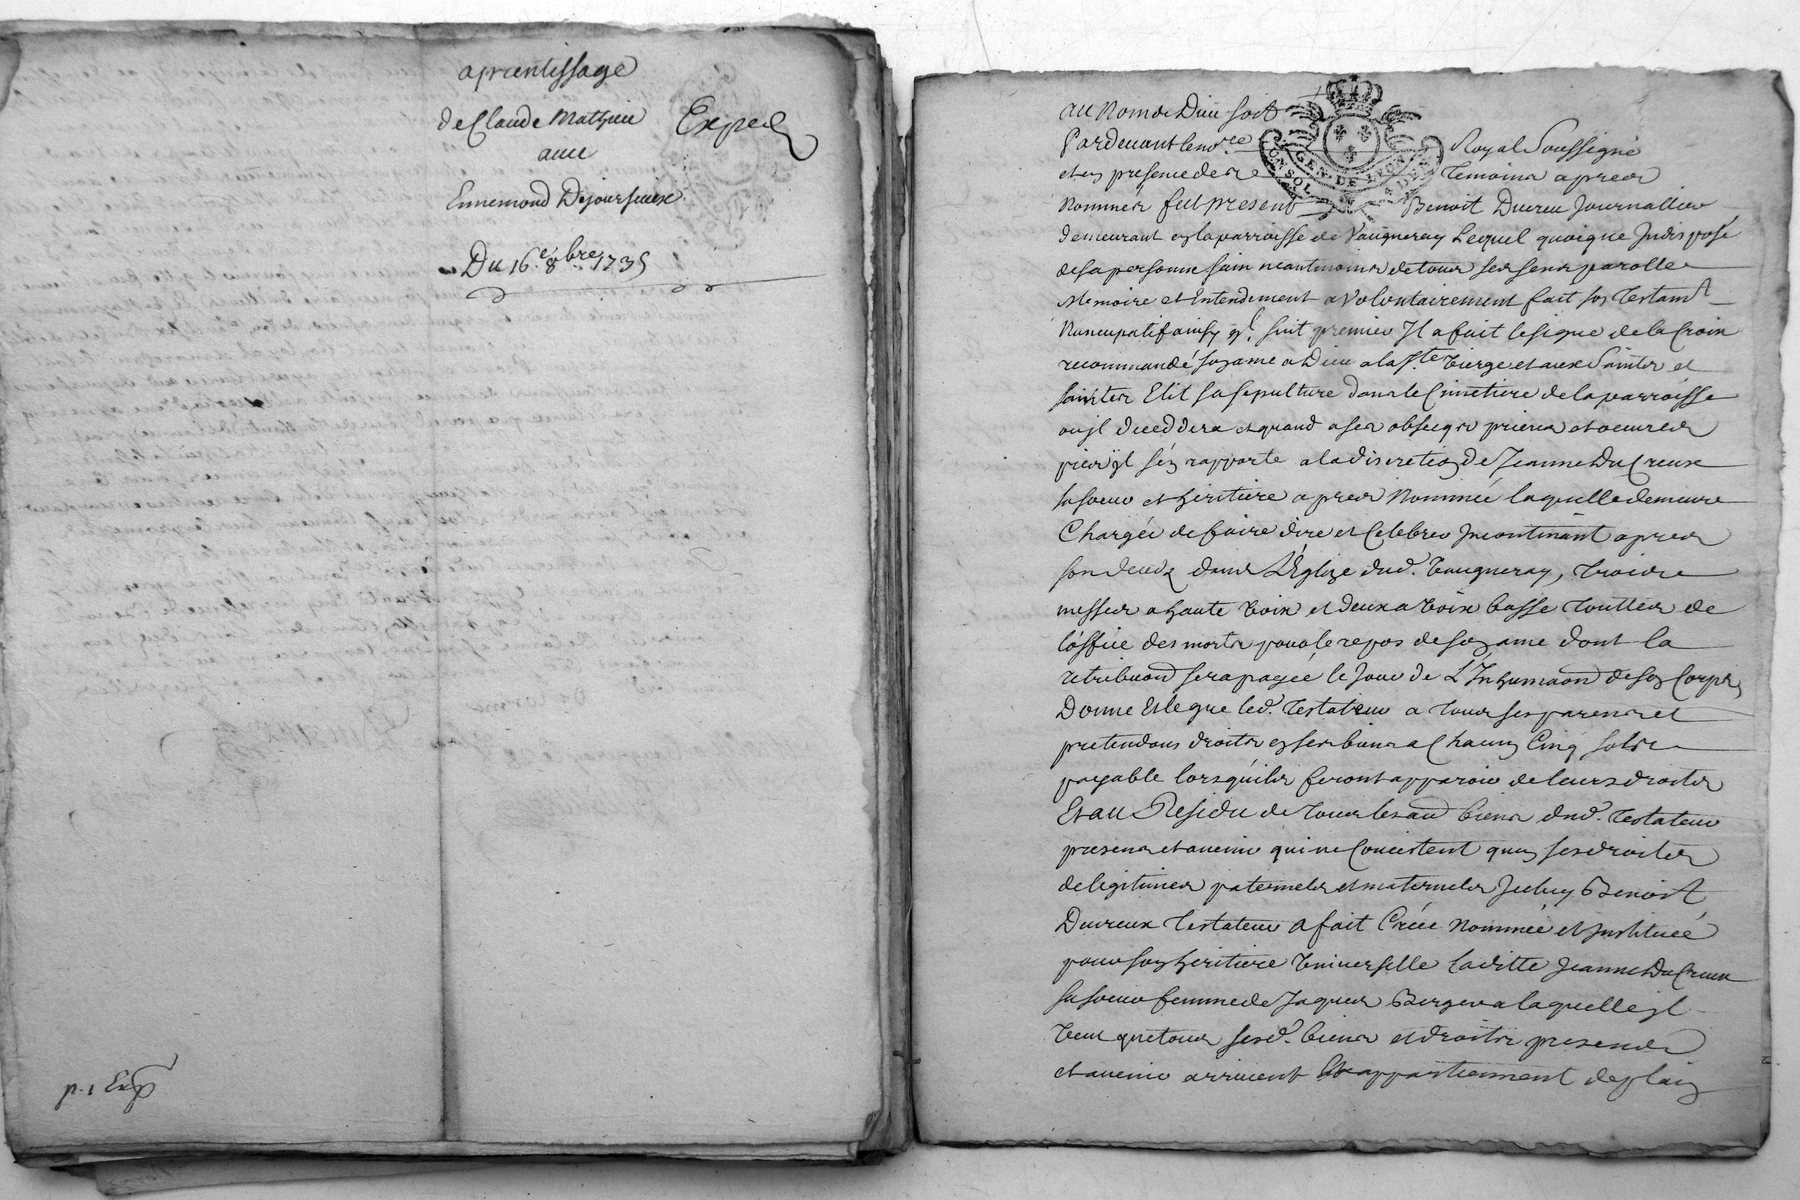 aprentissage
de Claude Mathieu
avec
Ennemond Dejoursieux
Exped
Du 16e 8bre 1735
p. 1 Exp
au Nom de Dieu soit
Pardevant le no.re Royal Soussigné
et en presence de
temoins apres
Nommés fut present Benoit Ducreu Journallier
demeurant en la parroisse de Vaugneray Lequel quoique Indisposé
de sa personne sain neantmoins de tous ses sens parolle
Memoire et Intendement a Volontairement fait son Testamt
Noncupatif ainsy ql. suit premier Il a fait le signe de la Croix
recommandé son ame a Dieu a la Ste. Vierge et aux Saints et
saintes Elit sa sepulture dans le Cimetiere de la parroisse
ou jl deceddera et quand a ses obseqs prieres et oeuvres
pies jl s'en rapporte a la discretion de Jeanne Du Creux
sa soeur et heritiere apres Nommée laquelle demeure
Chargée de faire dire et Celebrer Incontinant apres
son deces dans L'Eglize dud. Vaugneray, trois
messes a haute Voix et deux a Voix basse touttes de
l'office des morts pour le repos de son ame dont la
retribuon sera payée le Jour de L'Inhumaon de son Corps
Donne et legue led. Testateur a tous ses parens et
pretendans droits en ses biens a Chacun Cinq sols
payable lorsquils feront apparoir de leurs droits
Et au Residu de tous les aud biens dud. Testateur
presens et avenir qui ne Concistent qu'en ses droits
de legitimes paternels et maternels Jceluy Benoist
Ducreux testateur a fait Créée Nommée et Instituée
pour son heritiere Universelle laditte Jeanne Du Creux
sa soeur femme de Jaques Berger a laquelle jl
Veut que tous sesd. biens et droits presends
et avenir arrivent et appartiennent de plain